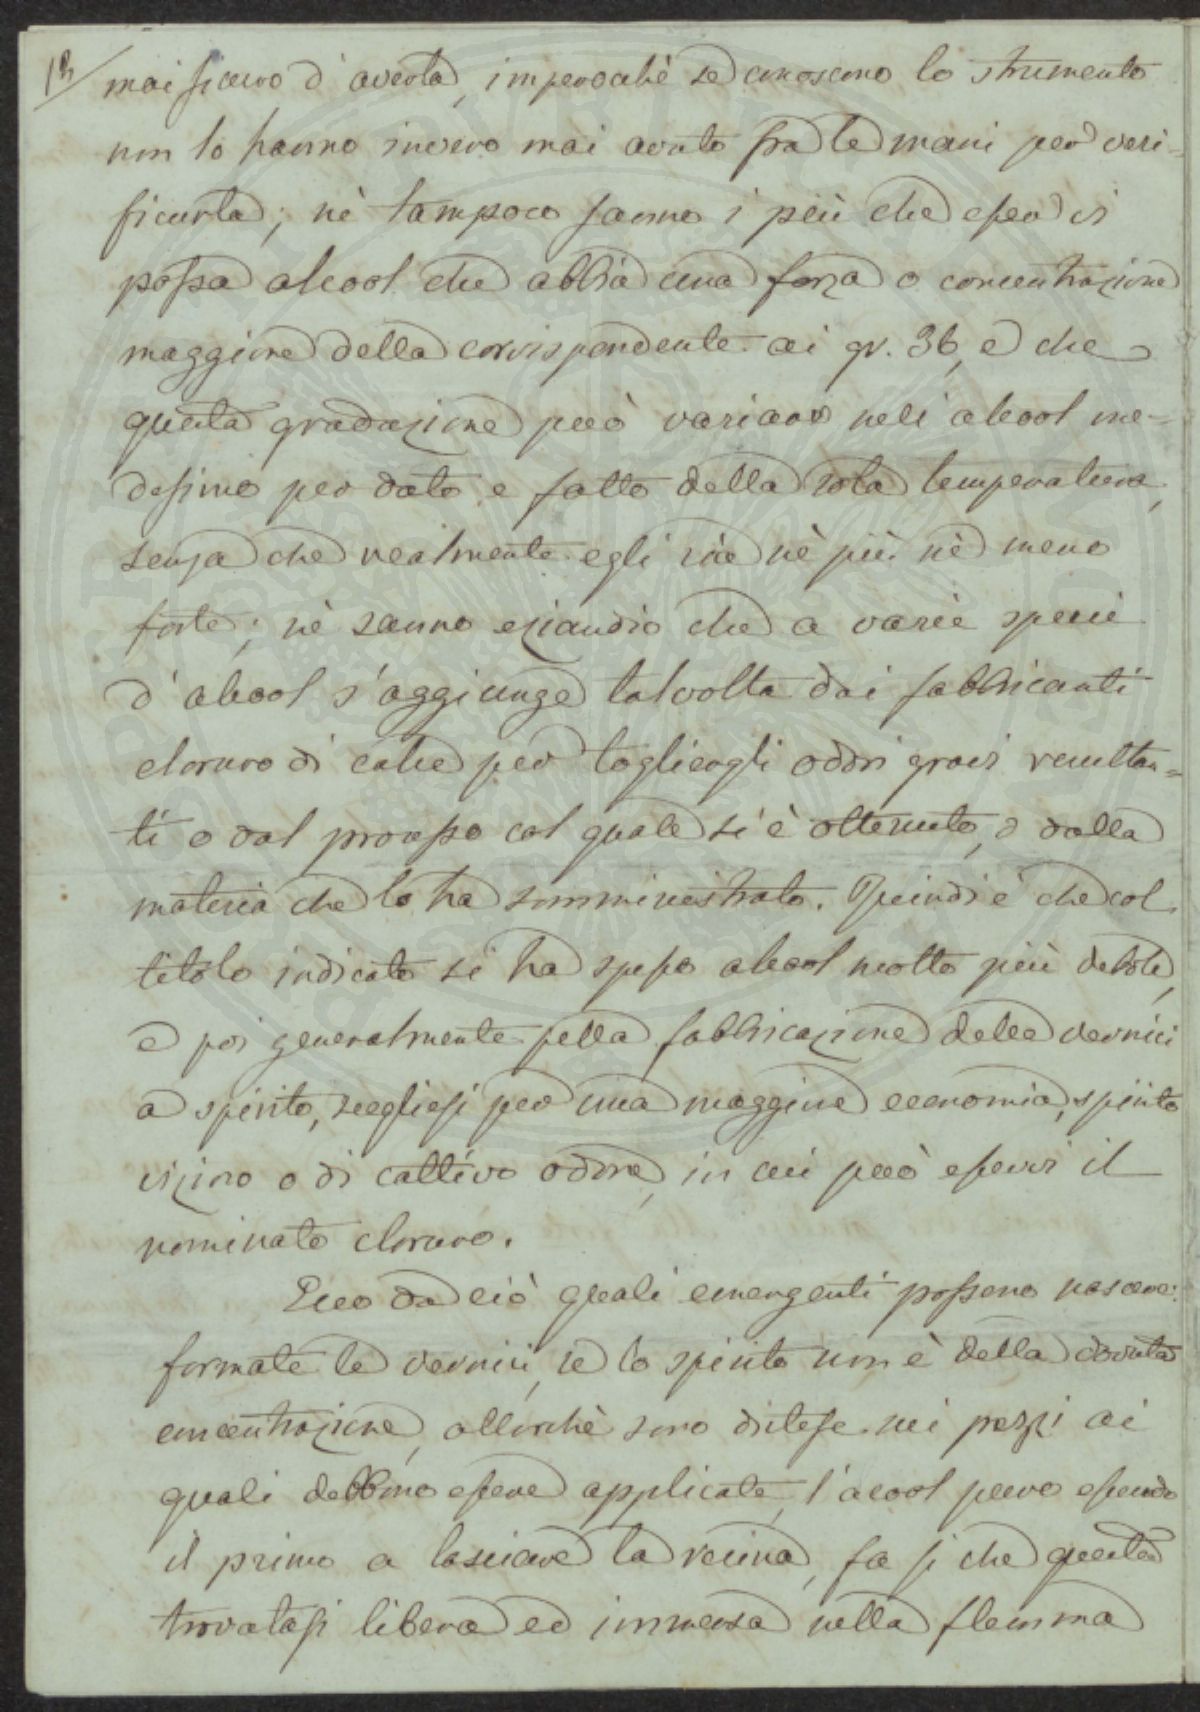 13/
mai sicuro d'averla, imperocchè se conoscono lo strumento
non lo hanno invero mai avuto fra le mani per veri=
ficarla; nè tampoco sanno i più che esser vi
possa alcool che abbia una forza o concentrazione
maggiore della corrispondente ai gr. 36, e che
questa gradazione può variare nell'alcool me-
desimo per dato e fatto della sola temperatura,
senza che realmente egli sia nè più nè meno
forte; nè sanno eziandio che a varie specie
d'alcool s'aggiunge talvolta dai fabbricanti
cloruro di calce per togliergli odori gravi resultan=
ti o dal processo col quale si è ottenuto, o dalla
materia che lo ha somministrato. Quindi è che col
titolo indicato si ha spesso alcool molto più debole,
e poi generalmente pella fabbricazione delle vernici
a spirito, scegliesi per una maggiore economia, spirito
vizioso o di cattivo odore, in cui può esservi il
nominato cloruro.
Ecco da ciò quali emergenti possono nascere:
formate le vernici, se lo spirito non è della dovuta
concentrazione, allorchè sono distese nei pezzi ai
quali debbono essere applicate, l'acool puro essendo
il primo a lasciare la resina, fa sì che questa
trovatasi libera ed immersa nella flemma